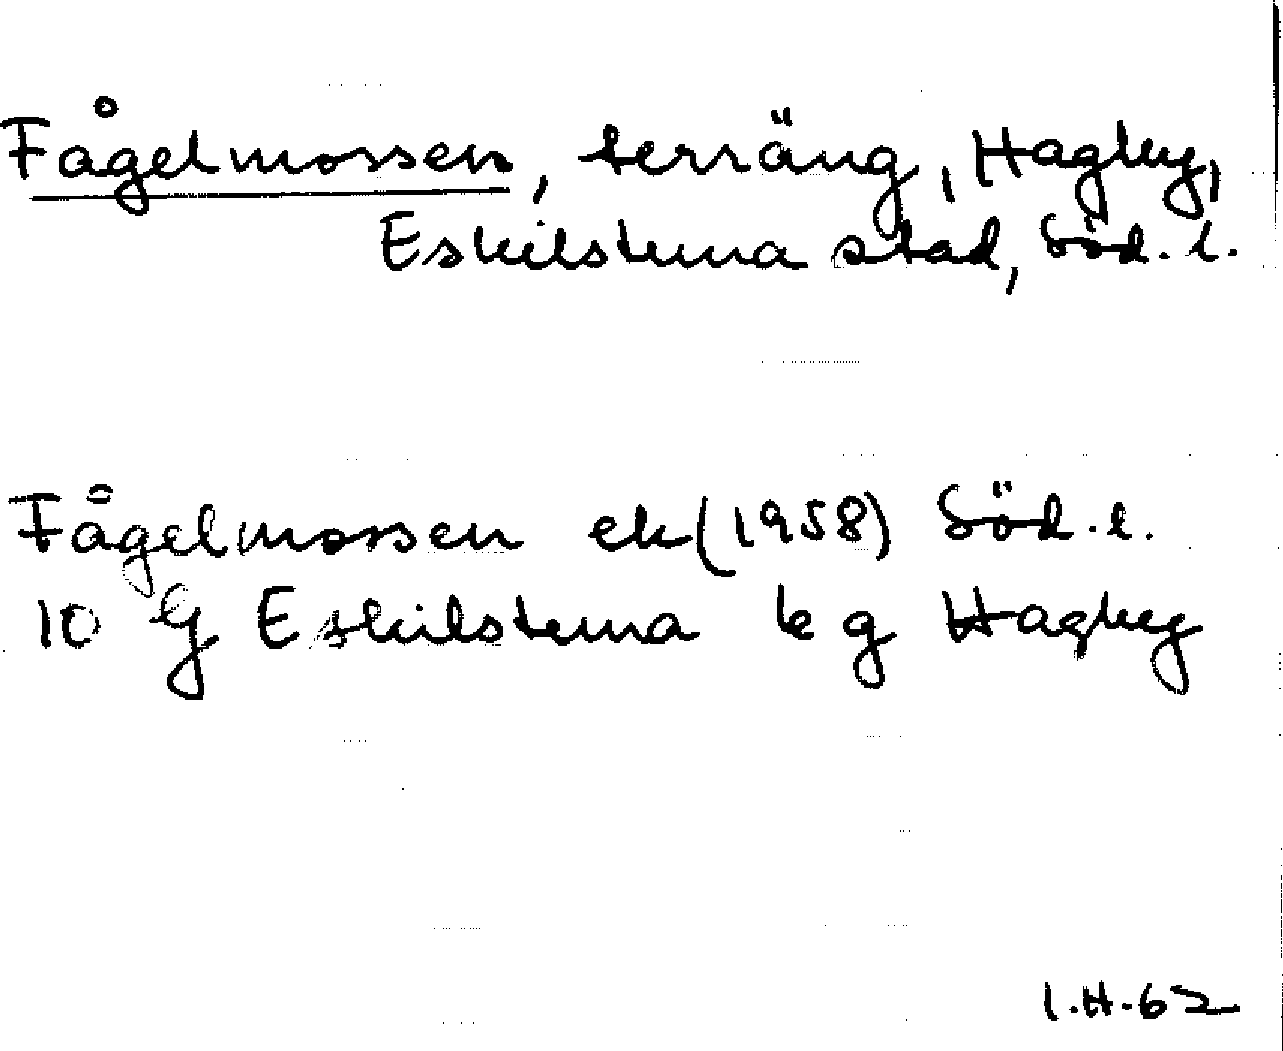 Fågelmossen, terräng, Hagby,
Eskilstuna stad, Söd. l.
Fågelmossen ek (1958) Söd. l.
10 G Eskilstuna 6 g Hagby
I.H.62